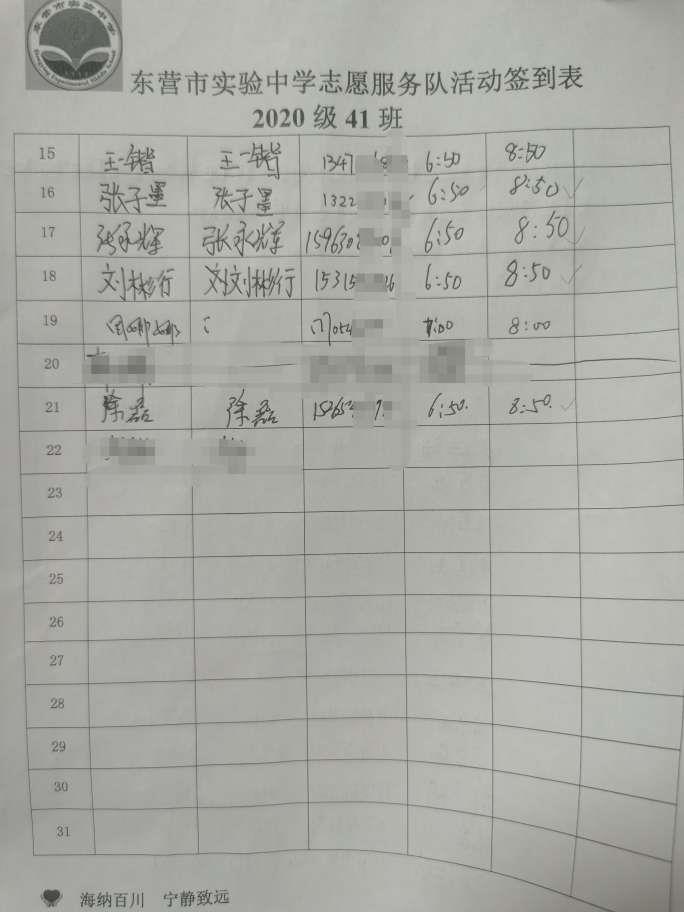 东营市实验中学
东营市实验中学志愿服务队活动签到表
2020级41班
15 王一锴 王一锴 1347 6:50 8:50
16 张子墨 张子墨 1322 6:50 8:50
17 张永辉 张永辉 159630 6:50 8:50
18 刘彬行 刘彬行 15315 6:50 8:50
19 8:00
20
21 徐磊 徐磊 15265 6:50. 8:50.
22
23
24
25
26
27
28
29
30
31
海纳百川 宁静致远